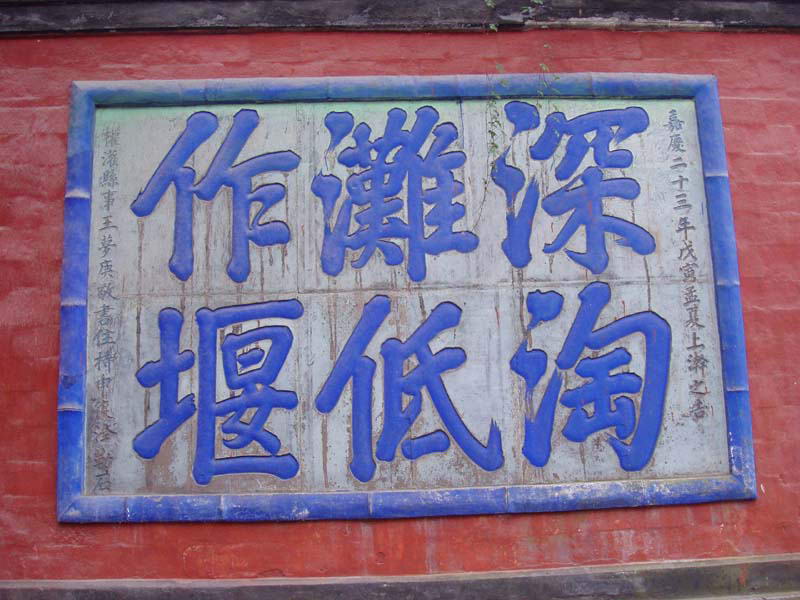 嘉慶二十三年戊寅孟夏上澣之吉
深淘
灘低
作堰
權灌縣事王夢庚敬書住持申